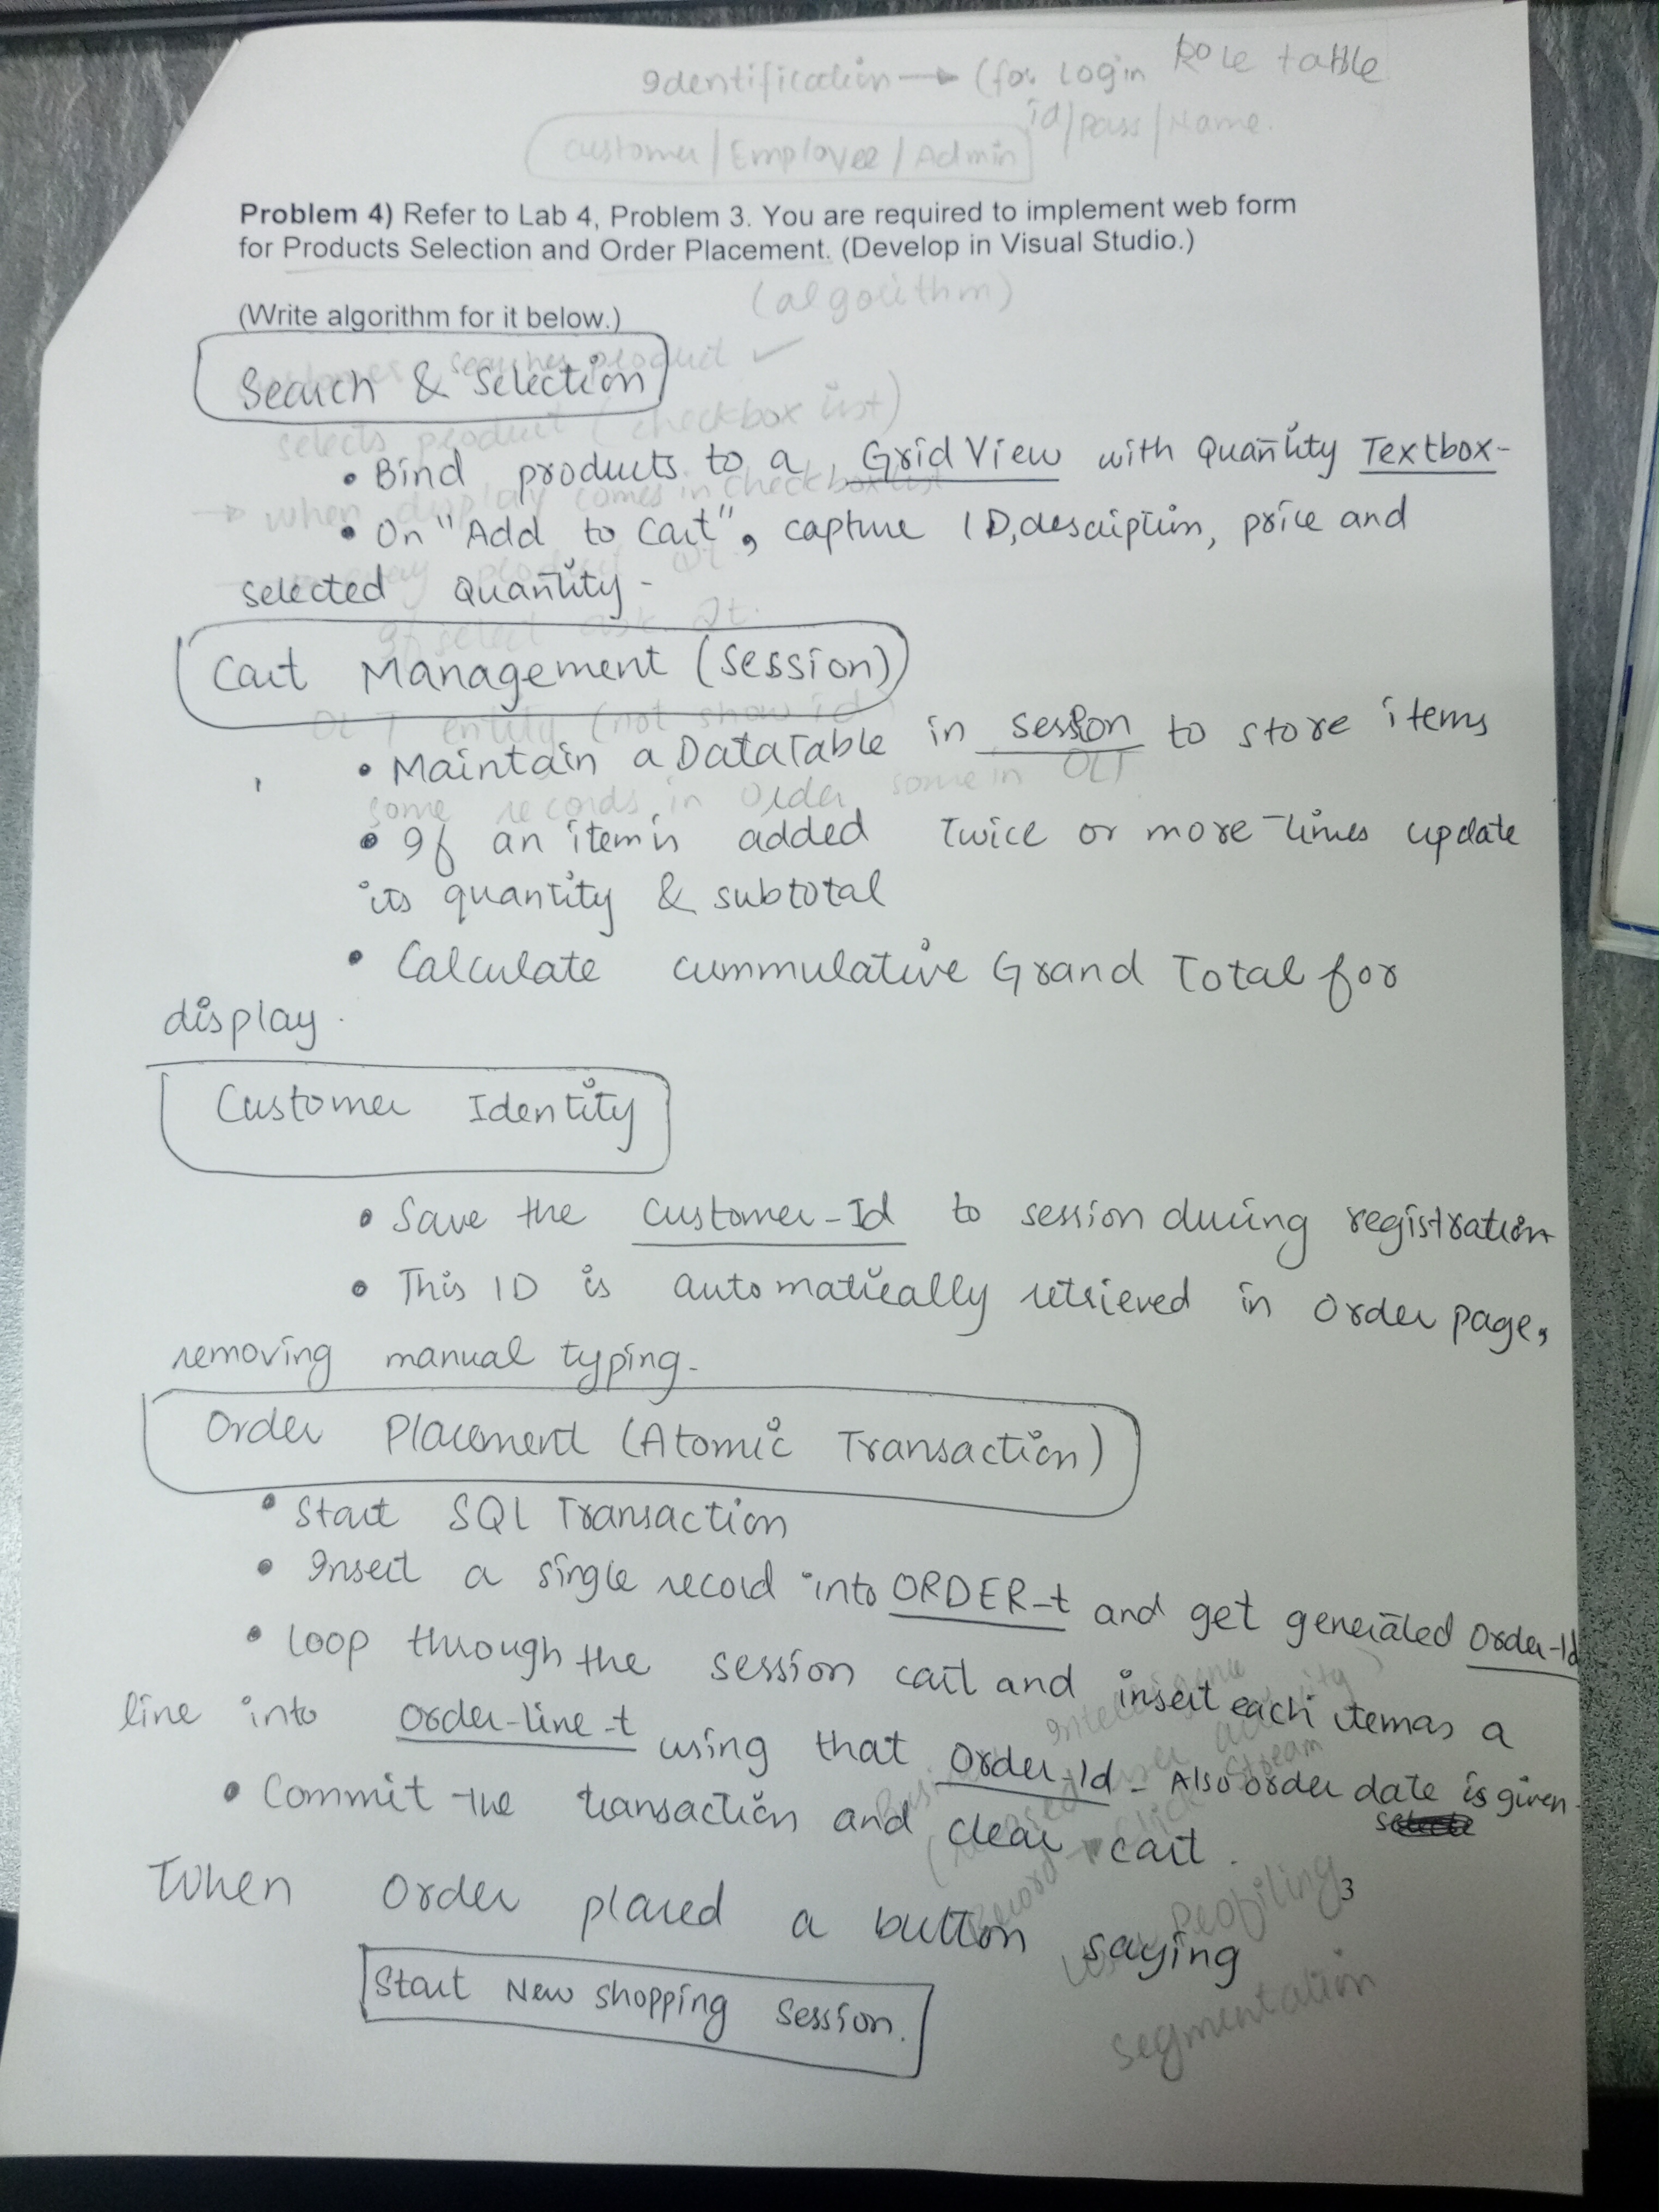 Identification → (for Login Role table
id/pass/Name.
customer/Employee/Admin
Problem 4) Refer to Lab 4, Problem 3. You are required to implement web form
for Products Selection and Order Placement. (Develop in Visual Studio.)
(algorithm)
(Write algorithm for it below.)
customer searches product ✓
Search & Selection
selects product (checkbox list)
• Bind products to a GridView with Quantity Textbox-
→ when display comes in checkbox list
• On "Add to Cart", capture ID, description, price and
product
selected Quantity -
If select ask It.
Cart Management (Session)
OLT entity (not show id
• Maintain a DataTable in session to store items
some records in Order some in OLT
• If an item is added Twice or more times update
its quantity & subtotal
• Calculate cummulative Grand Total for
display.
Customer Identity
• Save the Customer-Id to session during registration
• This ID is automatically retrieved in Order page,
removing manual typing.
Order Placement (Atomic Transaction)
• Start SQL Transaction
• Insert a single record into ORDER-t and get generated Order-Id
• Loop through the session cart and insert each item as a
line into Order-line-t using that Order-Id - Also order date is given.
• Commit the transaction and clear cart.
When Order placed a button saying
3
Profiling
Start New Shopping Session.
Segmentation